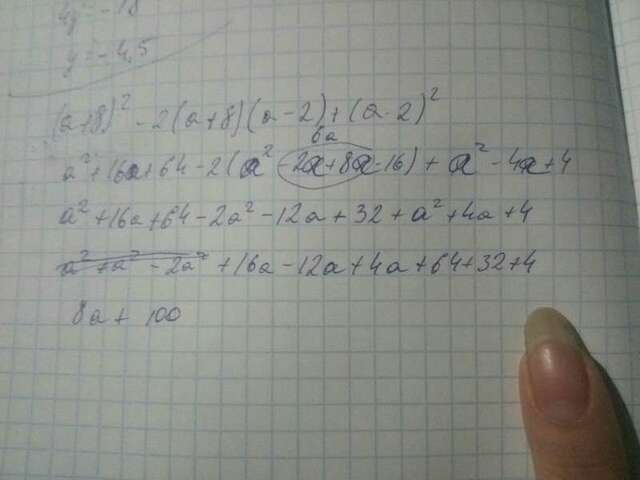 4y = -18
y = -4,5
(a+8)² - 2(a+8)(a-2)+(a-2)²
6a
a²+16a+64-2(a²-2a+8a-16)+a²-4a+4
a²+16a+64-2a²-12a+32+a²+4a+4
a²+a²-2a²+16a-12a+4a+64+32+4
8a+100